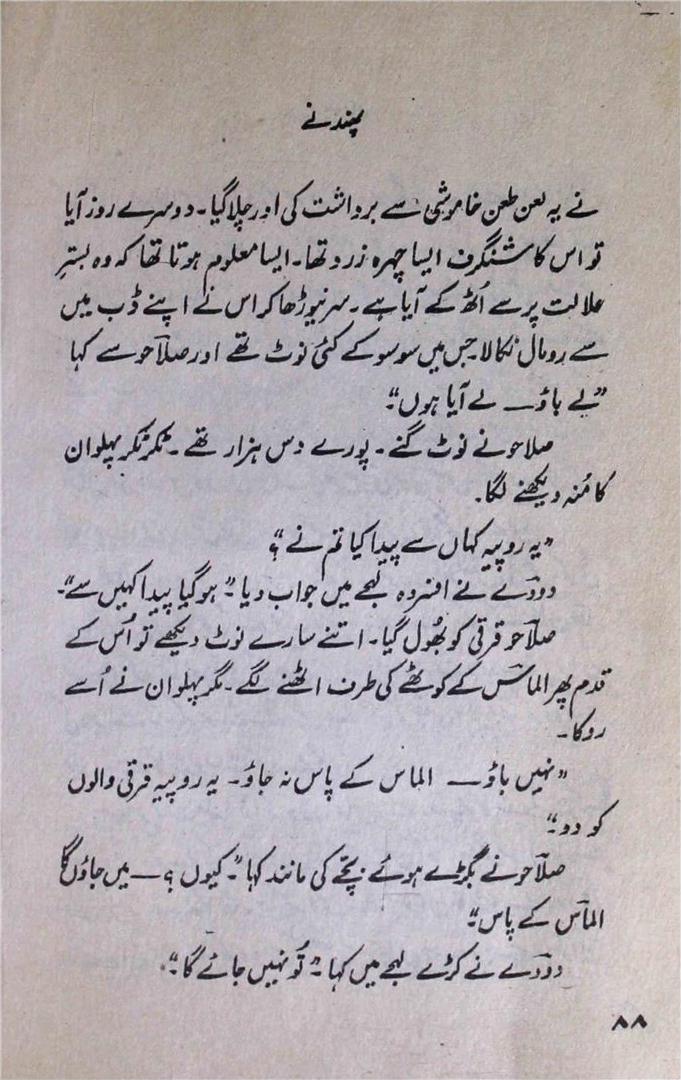 پھندنے
نے یہ لعن طعن خاموشی سے برداشت کی اور چلا گیا۔ دوسرے روز آیا
تو اس کا شنگرف ایسا چہرہ زرد تھا۔ ایسا معلوم ہوتا تھا کہ وہ بسترِ
علالت پر سے اُٹھ کے آیا ہے۔ سر نیوڑھا کر اس نے اپنے ڈب میں
سے رومال نکالا جس میں سو سو کے کئی نوٹ تھے اور صلاحو سے کہا
”لے باؤ ــ لے آیا ہوں“۔
صلاحو نے نوٹ گنے۔ پورے دس ہزار تھے۔ ٹکر ٹکر پہلوان
کا مُنہ دیکھنے لگا۔
”یہ روپیہ کہاں سے پیدا کیا تم نے؟“
دودے نے افسردہ لہجے میں جواب دیا۔ ”ہو گیا پیدا کہیں سے“۔
صلاحو قرقی کو بُھول گیا۔ اتنے سارے نوٹ دیکھے تو اُس کے
قدم پھر الماس کے کوٹھے کی طرف اٹھنے لگے۔ مگر پہلوان نے اُسے
روکا۔
”نہیں باؤ ــ الماس کے پاس نہ جاؤ۔ یہ روپیہ قرقی والوں
کو دو“۔
صلاحو نے بگڑے ہوئے بچّے کی مانند کہا۔ ”کیوں؟ ــ میں جاؤں گا
الماس کے پاس“۔
دودے نے کڑے لہجے میں کہا۔ ”تُو نہیں جائے گا“۔
۸۸